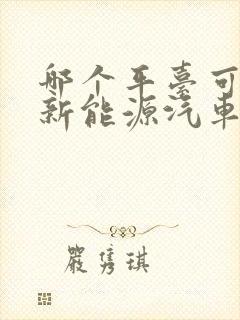 哪个平臺可
新能源汽車
嚴隽琪